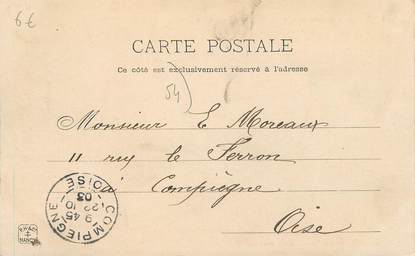 6€
CARTE POSTALE
Ce côté est exclusivement réservé à l'adresse
54
Monsieur E Moreaux
11 rue le Ferron
à Compiègne
Oise
COMPIEGNE
9 45
22 10
03
OISE
NANCY